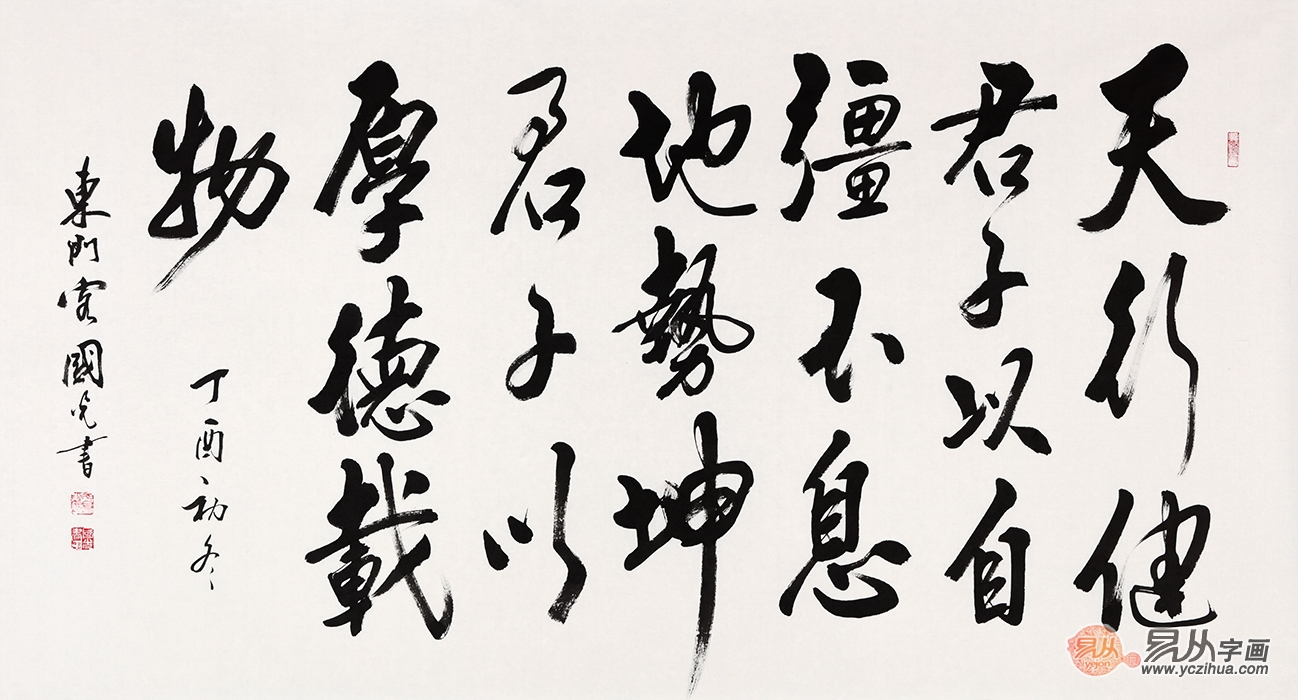 天行健
君子以自
彊不息
地勢坤
君子以
厚德載
物
丁酉初冬
東門客國光書
易从字画
www.yczihua.com
yejon